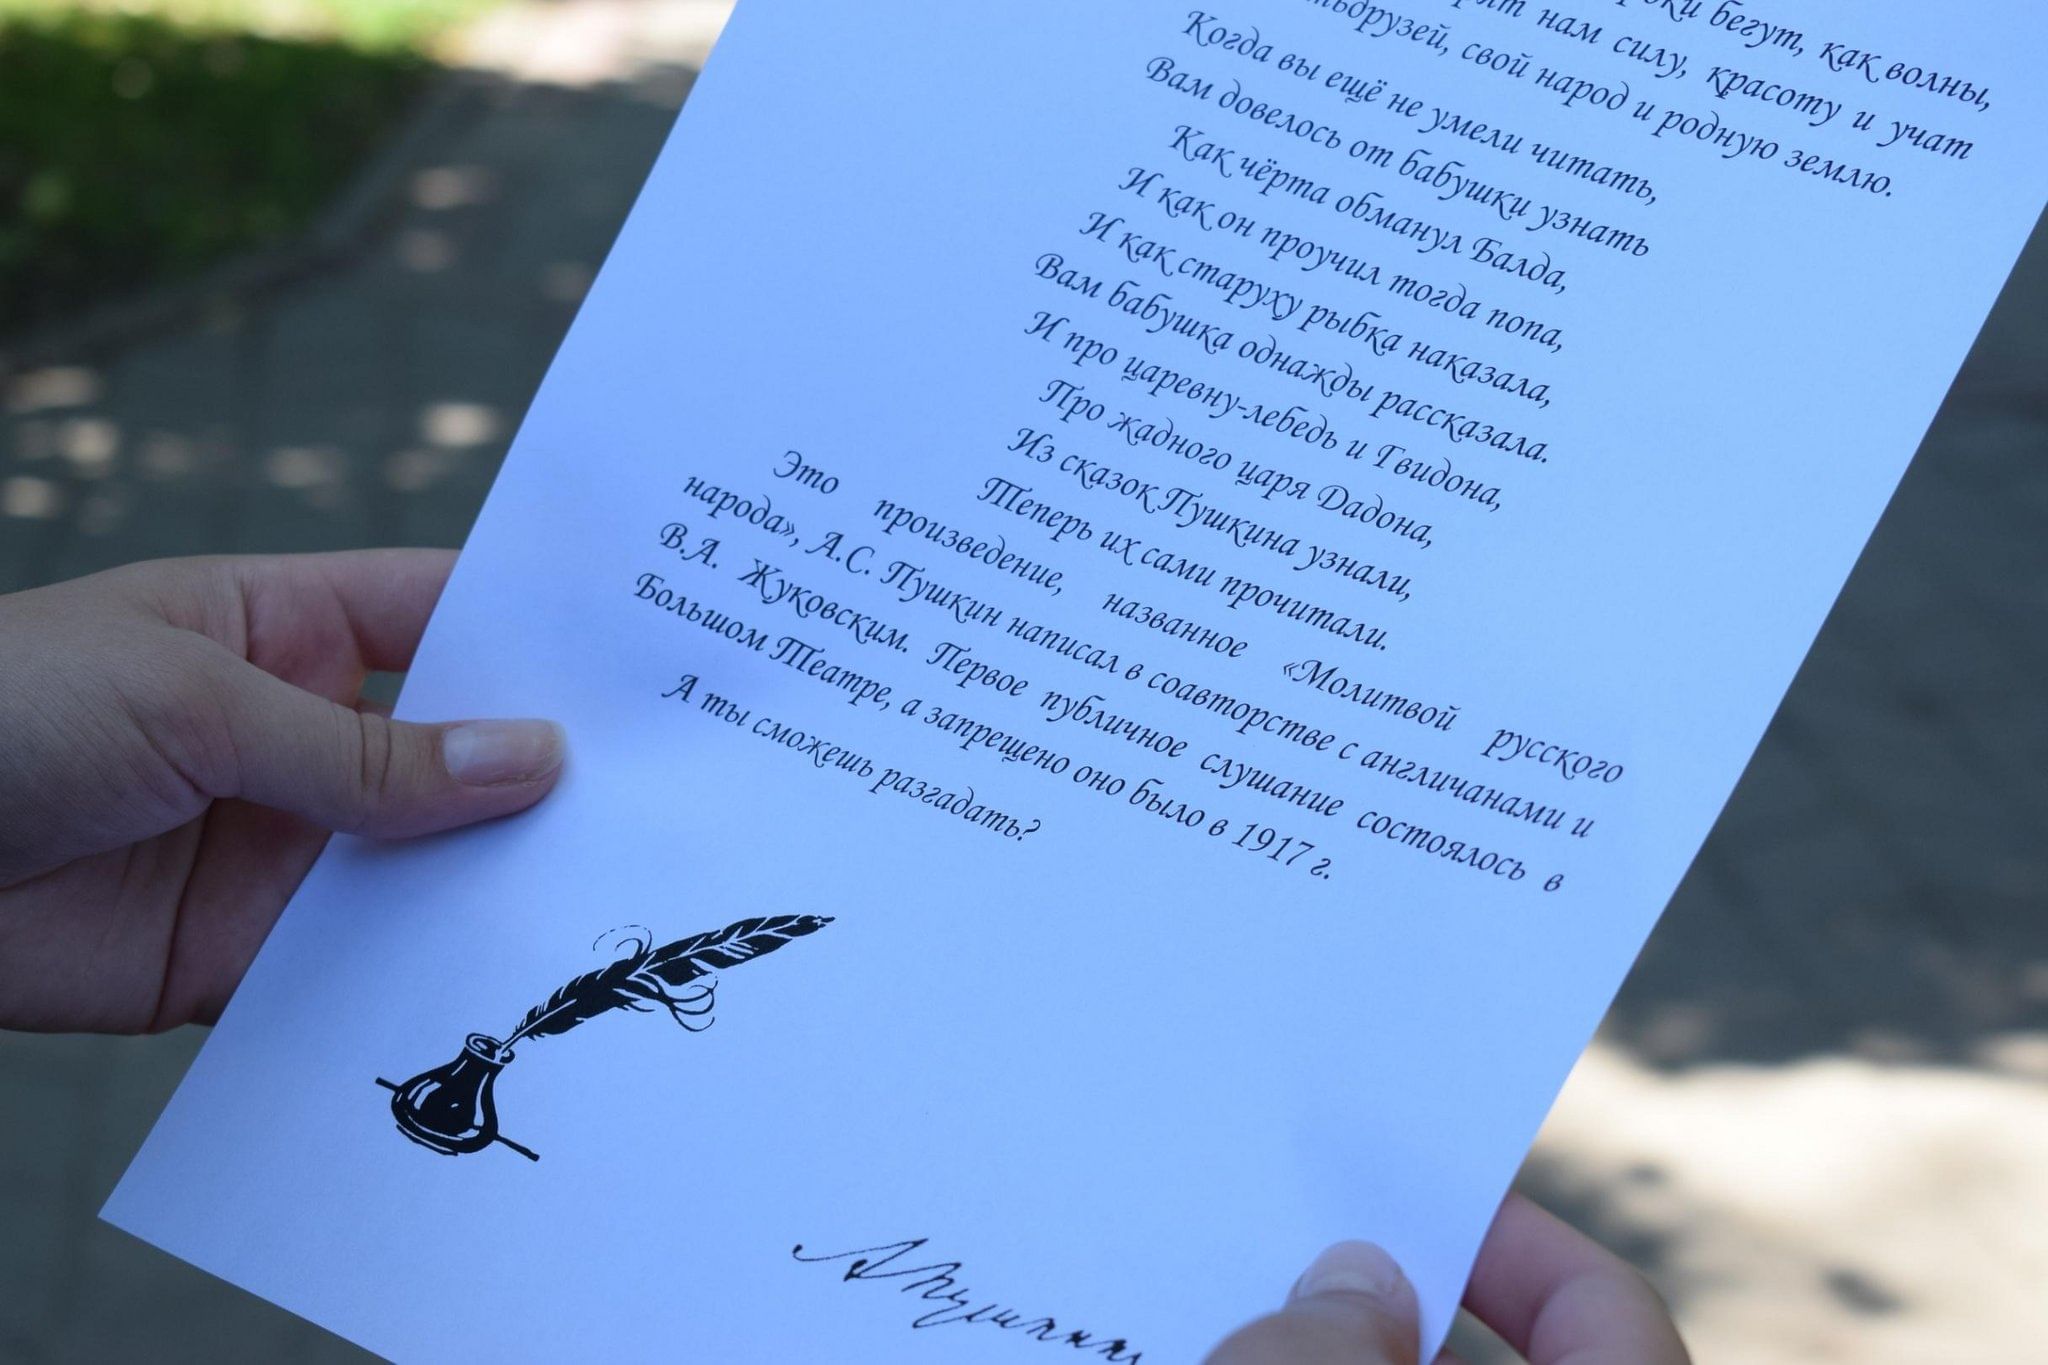 бегут, как волны,
нам силу, красоту и учат
друзей, свой народ и родную землю.
Когда вы ещё не умели читать,
Вам довелось от бабушки узнать
Как чёрта обманул Балда,
И как он проучил тогда попа,
И как старуху рыбка наказала,
Вам бабушка однажды рассказала.
И про царевну-лебедь и Гвидона,
Про жадного царя Дадона,
Из сказок Пушкина узнали,
Теперь их сами прочитали.
Это произведение, названное «Молитвой русского
народа», А.С. Пушкин написал в соавторстве с англичанами и
В.А. Жуковским. Первое публичное слушание состоялось в
Большом Театре, а запрещено оно было в 1917 г.
А ты сможешь разгадать?
АПушкин